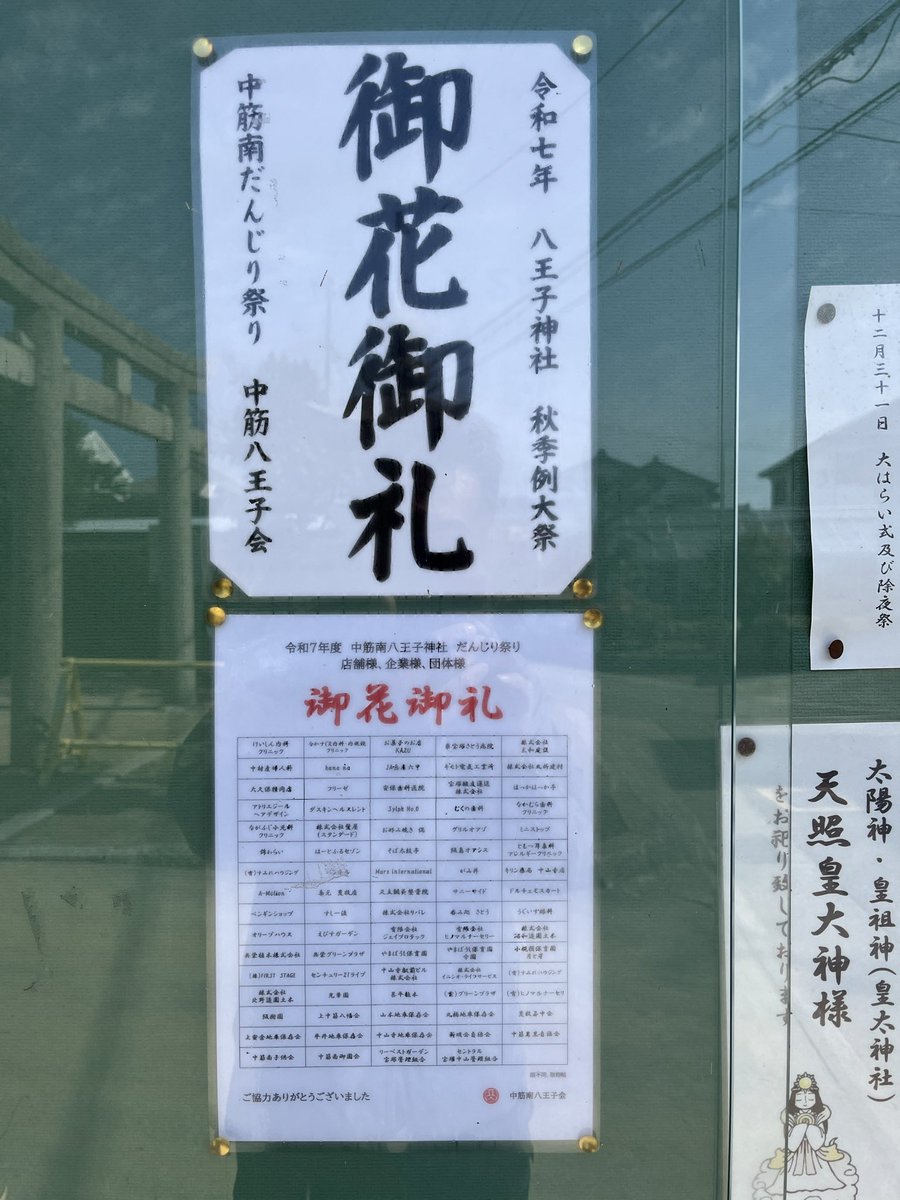 令和七年 八王子神社 秋季例大祭
御花御礼
中筋南だんじり祭り 中筋八王子会
令和7年度 中筋南八王子神社 だんじり祭り
店舗様、企業様、団体様
御花御礼
けいしん内科クリニック なかすく内科・内視鏡クリニック お菓子のお店KAZU 東宝塚さとう病院
中村産婦人科 hana ha JA兵庫六甲
大久保精肉店 フリーゼ 安保歯科医院 宝塚醸運運送株式会社 ほっかほっか亭
アトリエジールヘアデザイン ダスキンヘルスレント Sylph No.0 むくの歯科 なかむら歯科クリニック
ながふじ小児科クリニック 株式会社蟹屋(スタンダード) お好み焼き 偶 グリルオアゾ ミニストップ
錦わらい はーとふるセゾン そば太鼓亭 阪急オアシス ともペ耳鼻科アレルギークリニック
(有)すみれハウジング Mars international がみ丼 キリン薬局 中山寺店
A-Motion 足立鍼灸整骨院 サニーサイド ドルチェモスカート
ペンギンショップ すし一湊 株式会社リバレ 呑み処 さとう うぐいす眼科
オリーブハウス えびすガーデン 有限会社ジェイプロテック 有限会社ヒノマルナーセリー 株式会社
兵堂植木株式会社 兵堂グリーンプラザ やまぼうし保育園 やまぼうし保育園分園
(株)FIRST STAGE センチュリー21ライブ 中山寺駅前ビル株式会社 株式会社イムシオ・ライフサービス (有)すみれハウジング
株式会社北野造園土木 光華園 甚平植木 (有)グリーンプラザ (有)ヒノマルナーセリ
阪樹園 上中筋八幡会 山本地車保存会 丸橋地車保存会
上安倉地車保存会 平井地車保存会 中山寺地車保存会
中筋南子供会 中筋南御園会 リーベストガーデン宝塚管理組合 セントラル宝塚中山管理組合
順不同、敬称略
ご協力ありがとうございました
中筋南八王子会
十二月三十一日 大はらい式及び除夜祭
太陽神・皇祖神(皇太神社)
天照皇大神様
をお祀り致しております